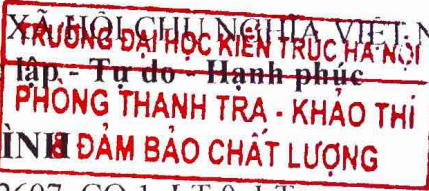 XÃ HỘI CHỦ NGHĨA VIỆT N
TRƯỜNG ĐẠI HỌC KIẾN TRÚC HÀ NỘI
lập - Tự do - Hạnh phúc
PHÒNG THANH TRA - KHẢO THÍ
ÌNH
& ĐẢM BẢO CHẤT LƯỢNG